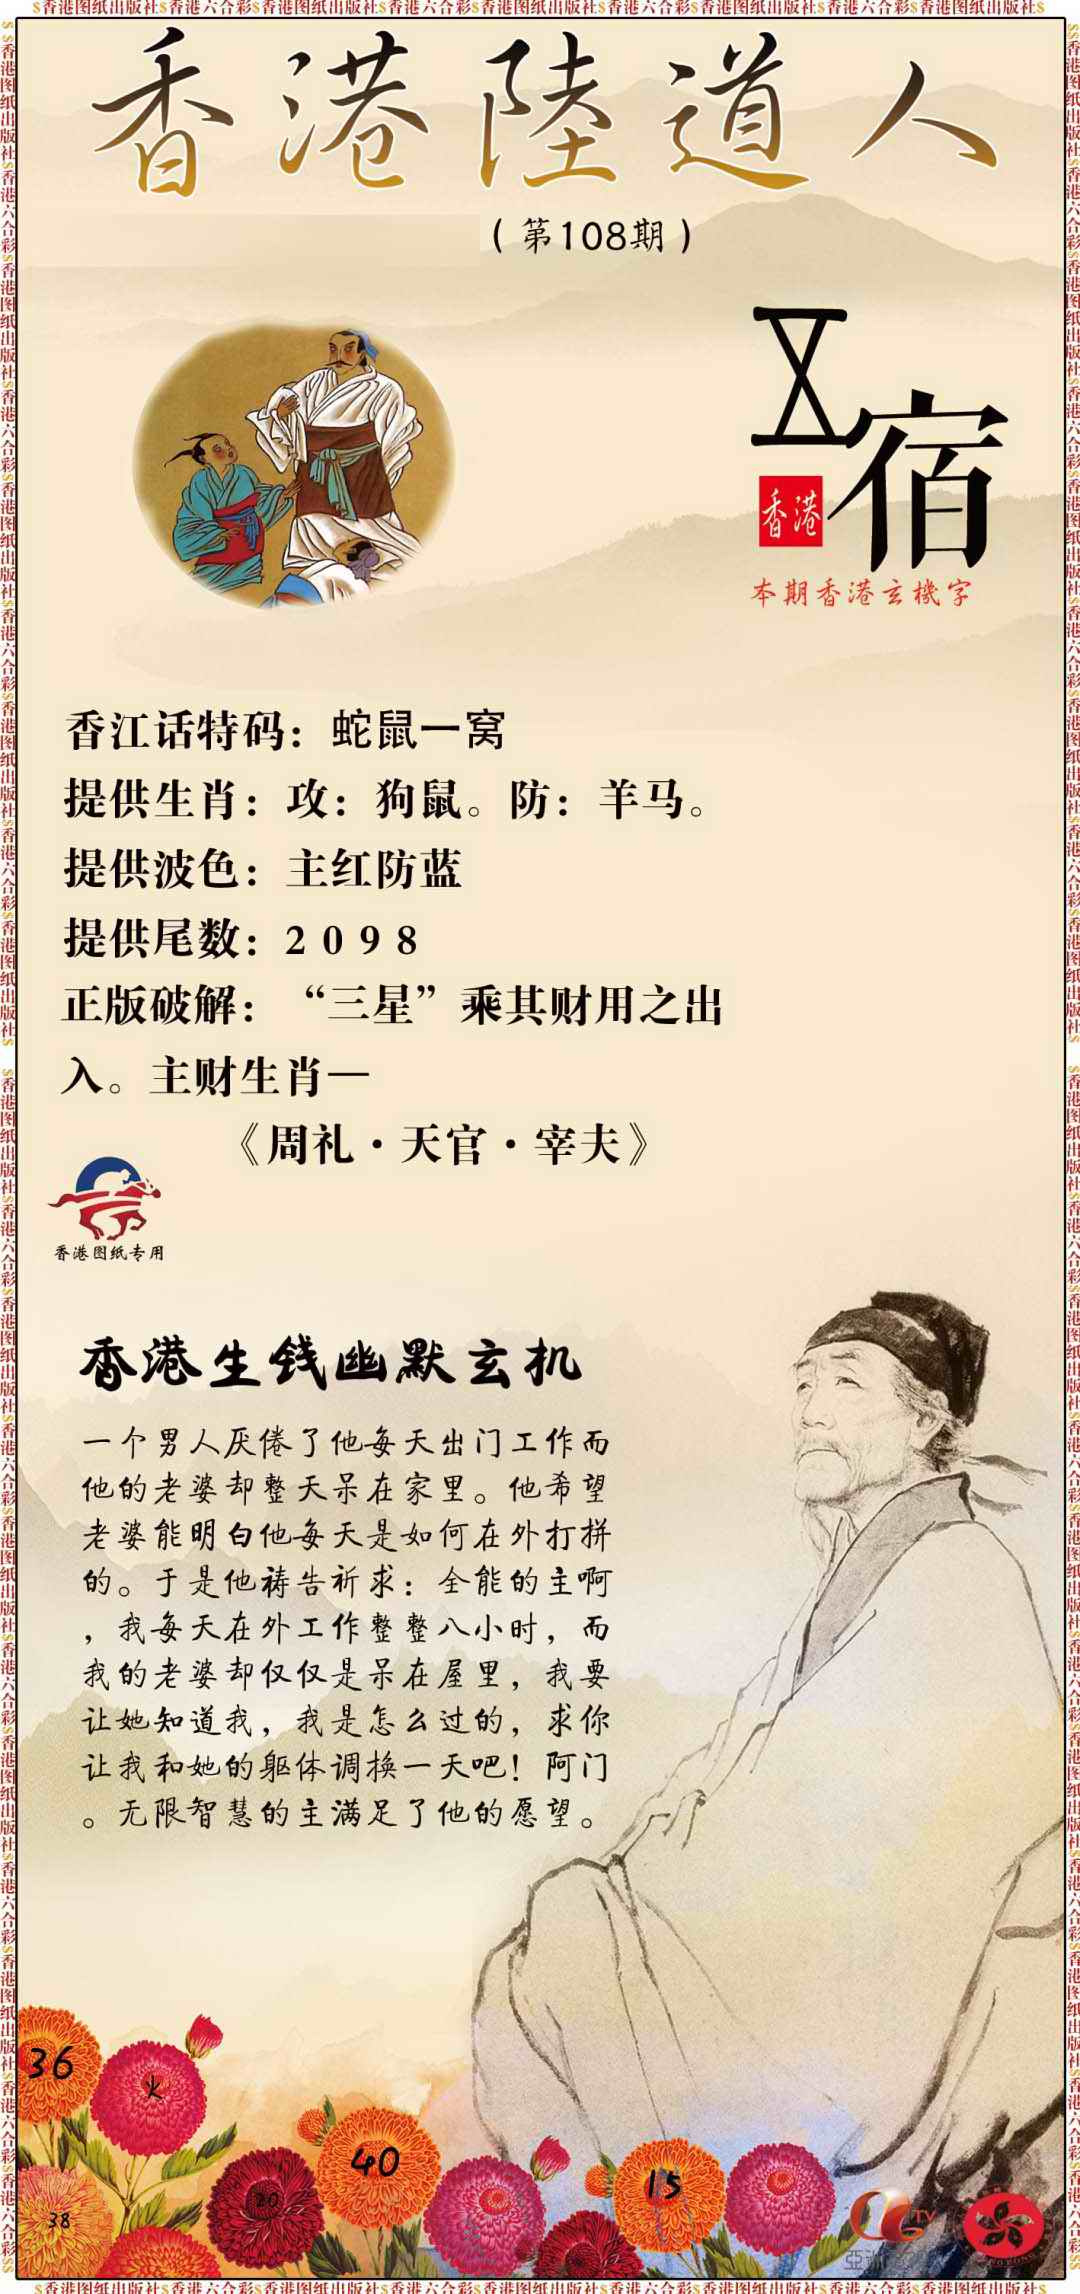 $香港图纸出版社$香港六合彩$香港图纸出版社$香港六合彩$香港图纸出版社$香港六合彩$香港图纸出版社$香港六合彩$香港图纸出版社$
香港陸道人
（第108期）
宿
香港
本期香港玄機字
香江话特码：蛇鼠一窝
提供生肖：攻：狗鼠。防：羊马。
提供波色：主红防蓝
提供尾数：2098
正版破解：“三星”乘其财用之出
入。主财生肖—
《周礼·天官·宰夫》
香港图纸专用
香港生钱幽默玄机
一个男人厌倦了他每天出门工作而
他的老婆却整天呆在家里。他希望
老婆能明白他每天是如何在外打拼
的。于是他祷告祈求：全能的主啊
，我每天在外工作整整八小时，而
我的老婆却仅仅是呆在屋里，我要
让她知道我，我是怎么过的，求你
让我和她的躯体调换一天吧！阿门
。无限智慧的主满足了他的愿望。
36
火
40
20
15
38
TV
$香港图纸出版社$香港六合彩$香港图纸出版社$香港六合彩$香港图纸出版社$香港六合彩$香港图纸出版社$香港六合彩$香港图纸出版社$